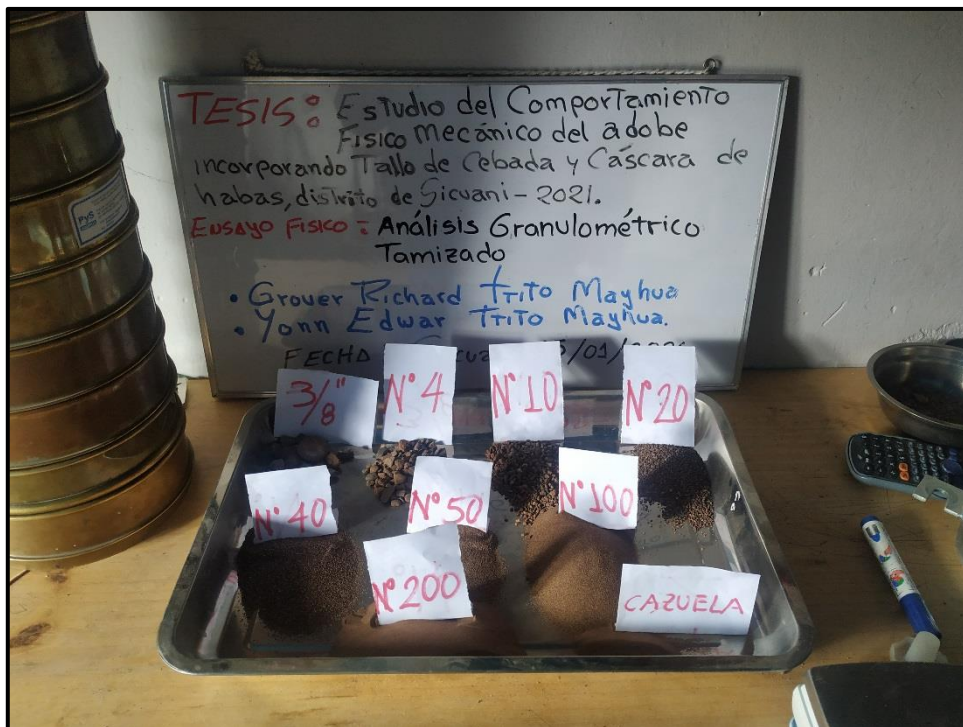 TESIS: Estudio del Comportamiento
Físico mecánico del adobe
incorporando Tallo de Cebada y Cáscara de
habas, distrito de Sicuani - 2021.
Ensayo Físico: Análisis Granulométrico
Tamizado
• Grover Richard Ttito Mayhua
• Yonn Edwar Ttito Mayhua.
FECHA /01/
3/8"
N° 4
N° 10
N° 20
N° 40
N° 50
N° 100
N° 200
CAZUELA
PyS